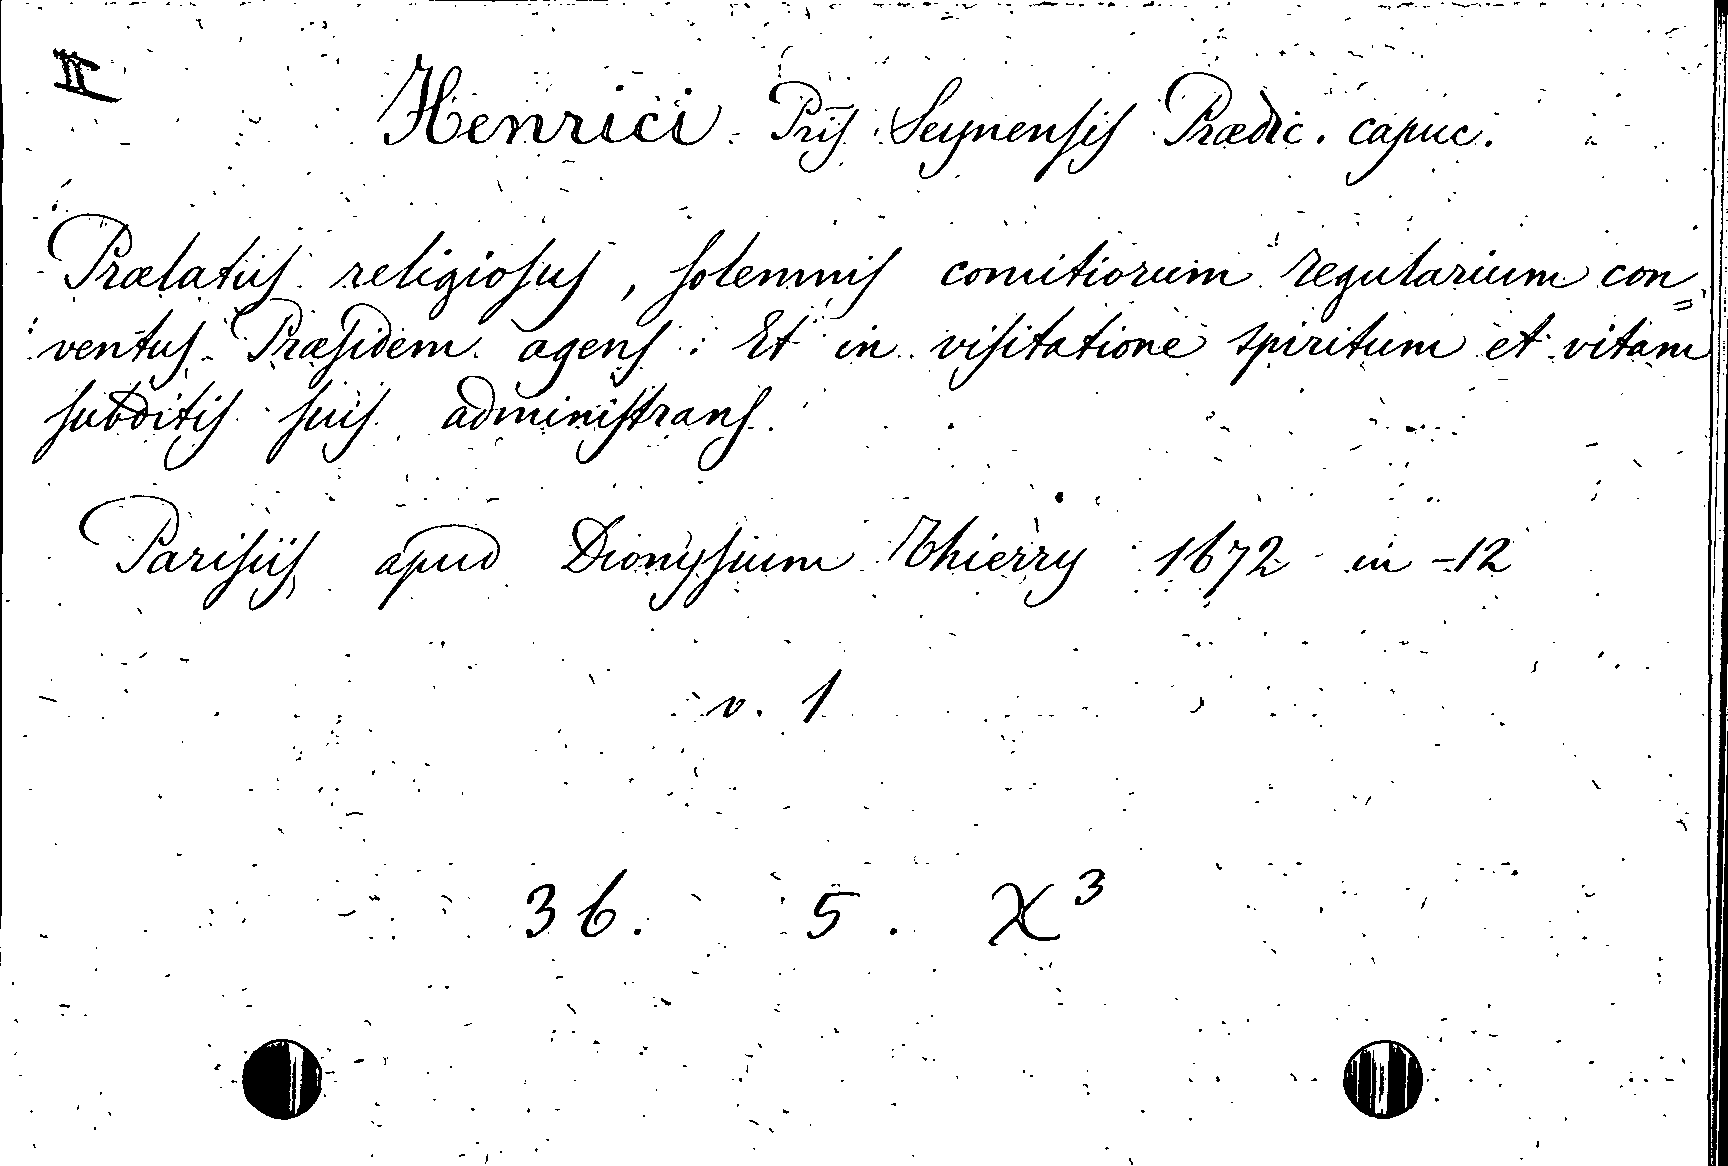 II
Henrici Pris Seynensis Prædic. capuc.
Prælatus religiosus, solemnis comitiorum regularium con=
ventus Præsidem agens: Et in visitatione spiritum et vitam
subditis suis administrans.
Parisiis apud Dionysium Thierry 1672 in-12
v. 1
36. 5. X³